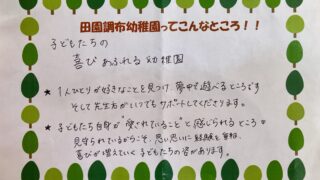 田園調布幼稚園ってこんなところ!!
子どもたちの
喜びあふれる幼稚園
★ 1人ひとりが好きなことを見つけ、夢中で遊べるところです
そして先生方がいつでもサポートしてくださります。
★ 子どもたち自身が"愛されていること"と感じられるところ。
見守られているからこそ、思い思いに経験を重ね、
喜びが増えていく子どもたちの姿があります。